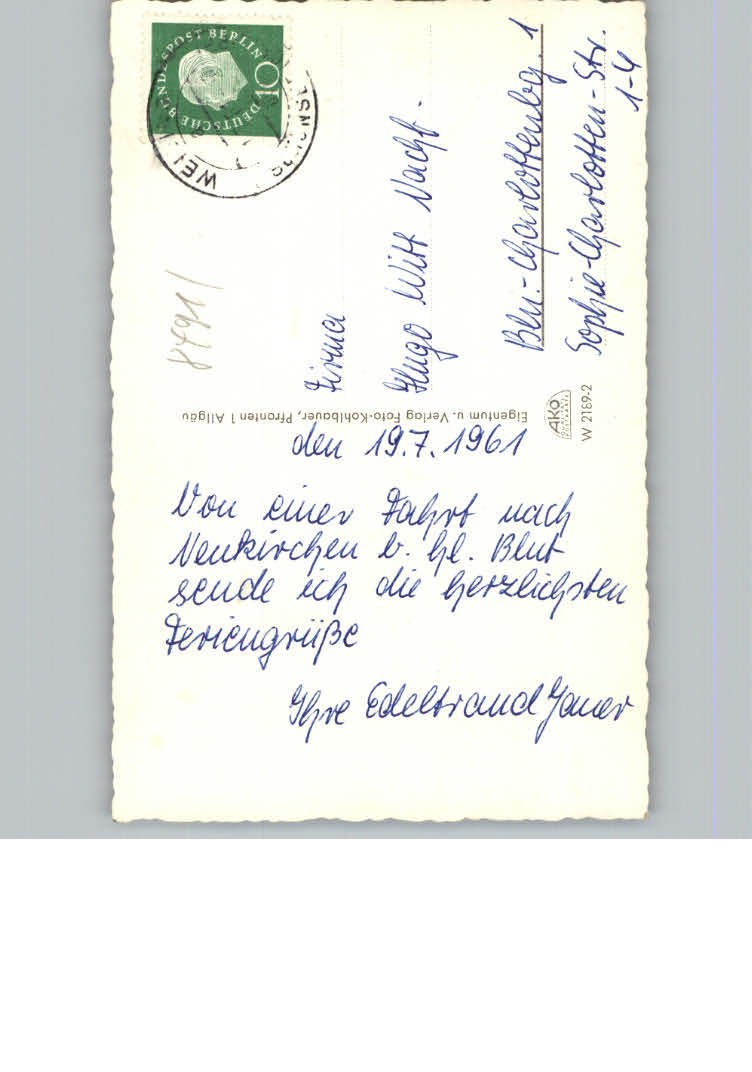 DEUTSCHE BUNDESPOST BERLIN
10
8791/
Firma
Hugo Witt Nachf.
Bln.-Charlottenbg. 1
Sophie-Charlotten-Str.
1-4
Eigentum u. Verlag Foto-Kohlbauer, Pfronten 1 Allgäu
AKO
W 2189-2
den 19.7.1961
Von einer Fahrt nach
Neukirchen b. hl. Blut
sende ich die herzlichsten
Feriengrüße
Ihre Edeltraud Janer